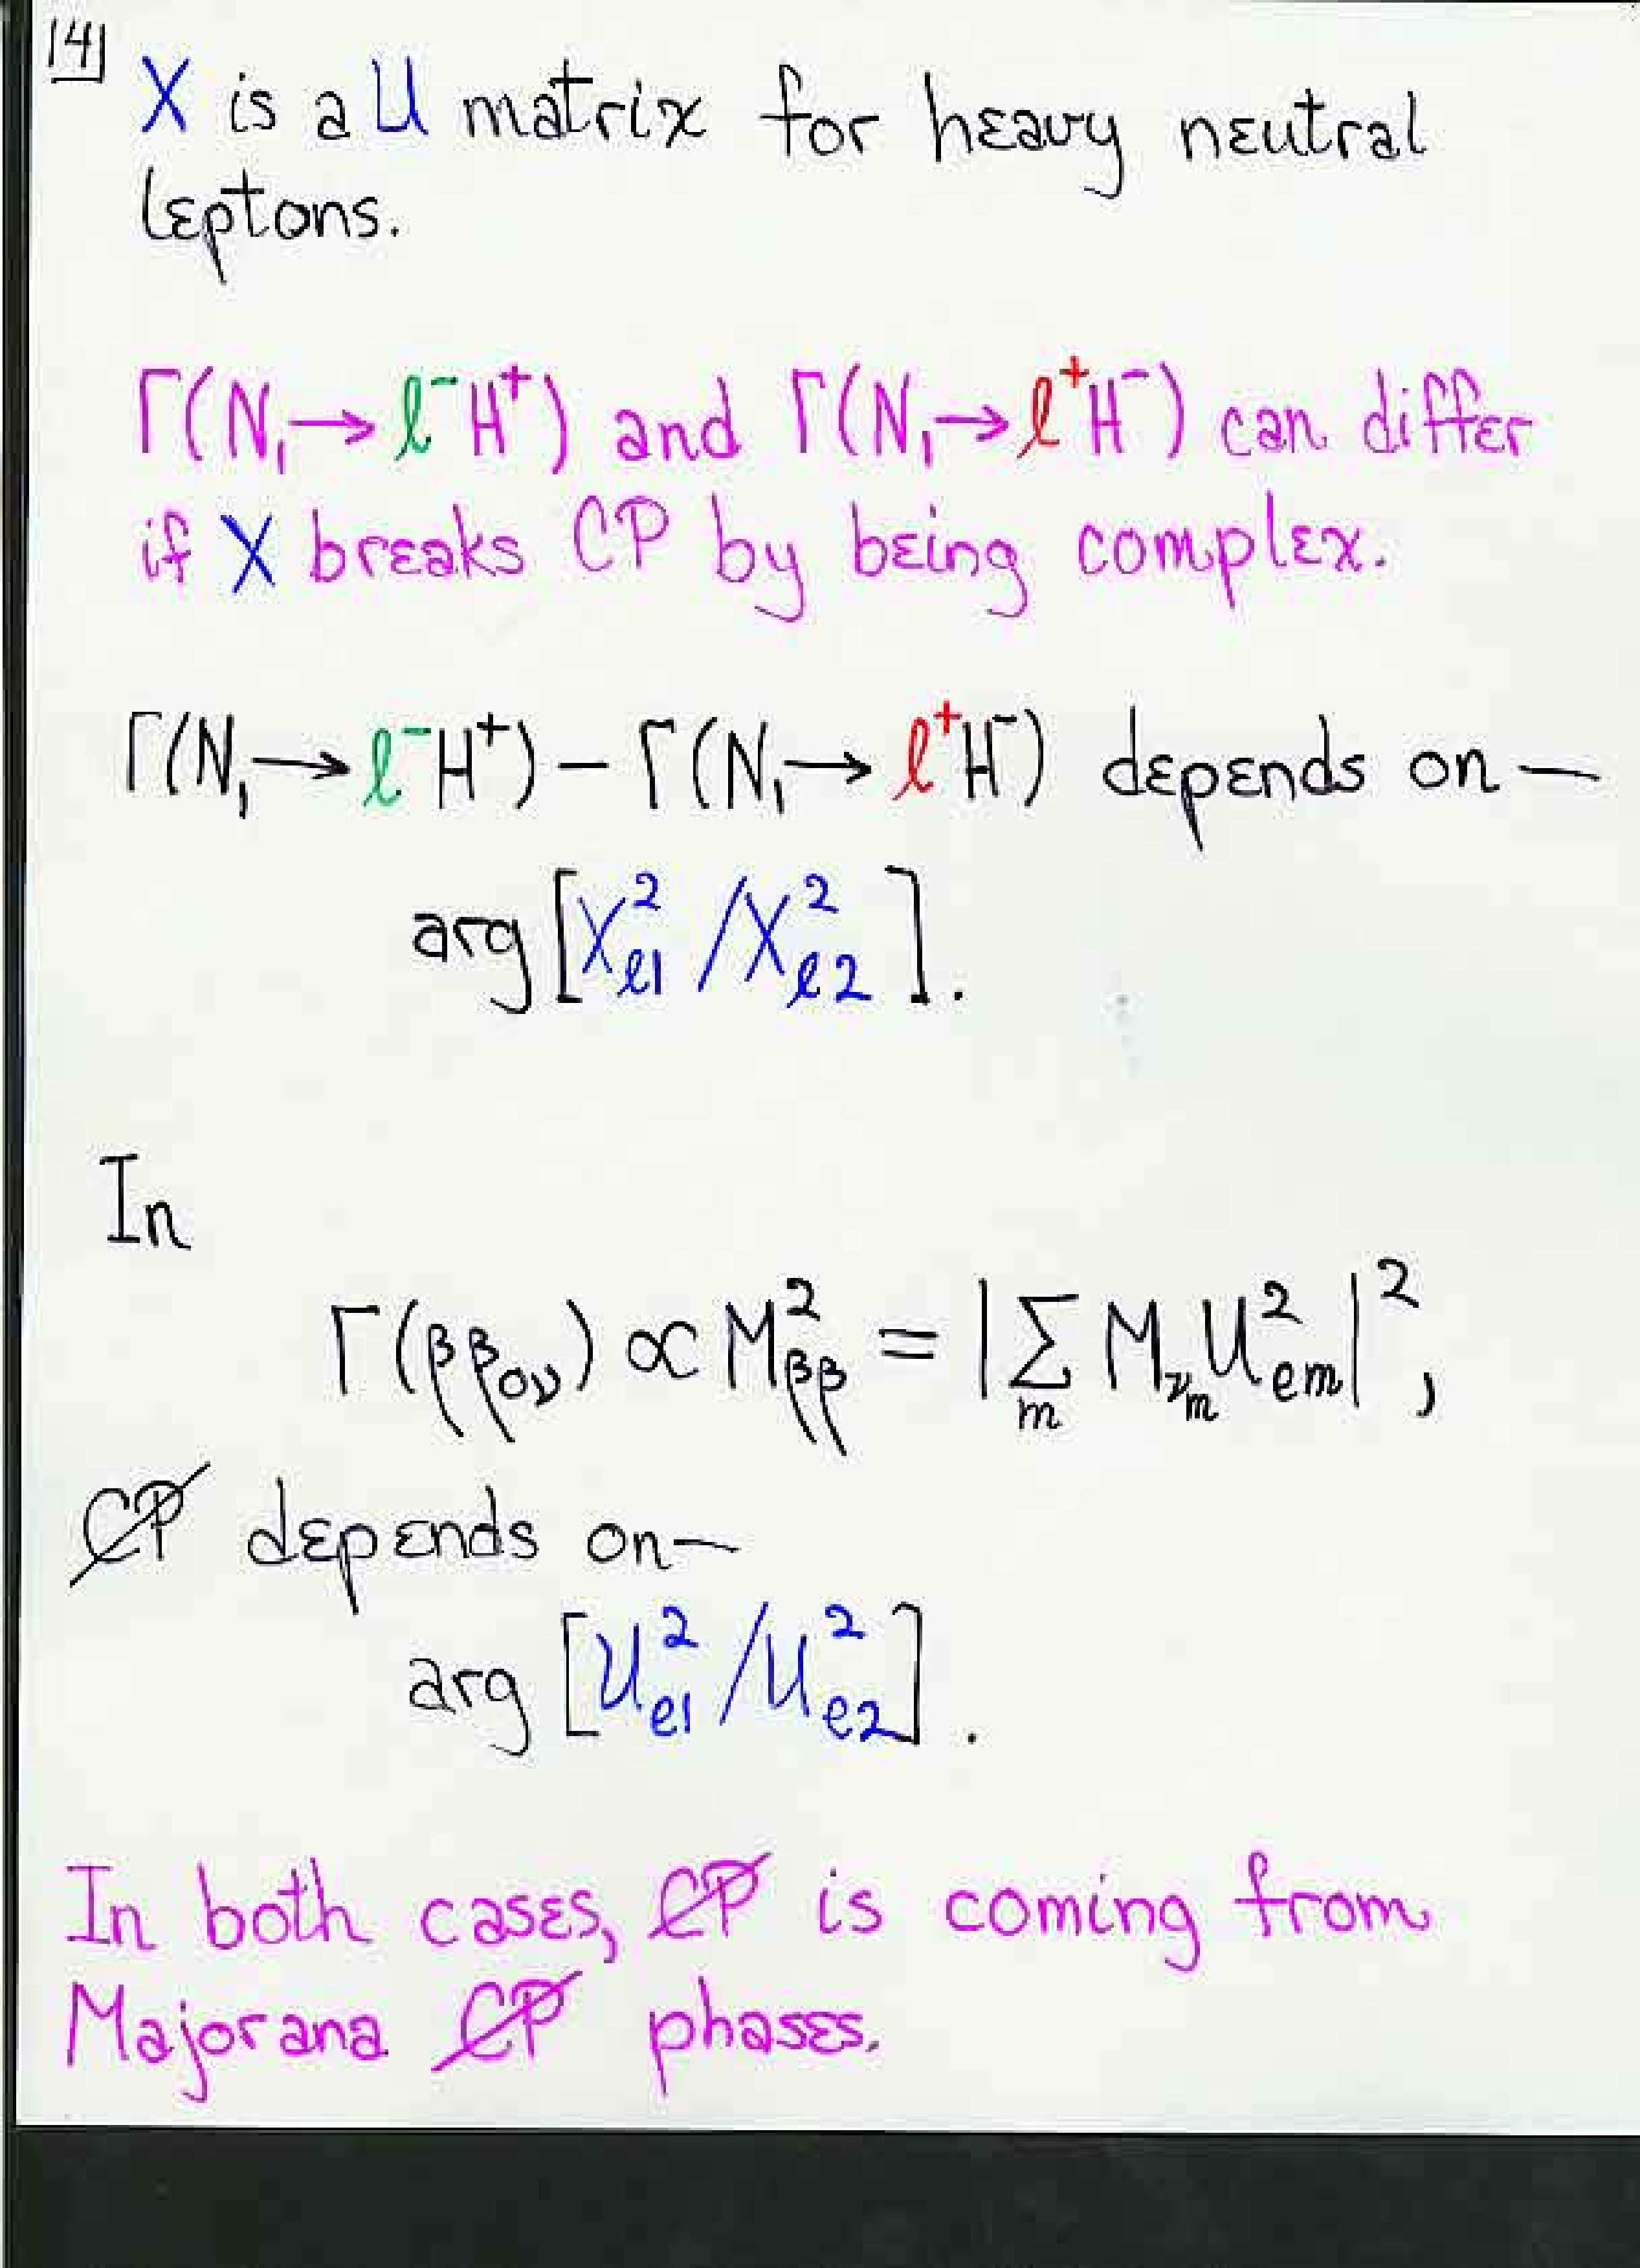 14
X is a U matrix for heavy neutral
leptons.
Γ(N₁→ℓ⁻H⁺) and Γ(N₁→ℓ⁺H⁻) can differ
if X breaks CP by being complex.
Γ(N₁→ℓ⁻H⁺) – Γ(N₁→ℓ⁺H⁻) depends on —
arg[X²ℓ1 /X²ℓ2].
In
Γ(ββ₀ν) ∝ M²ββ = |∑ₘ Mνₘ U²em|²,
C̸P̸ depends on —
arg [U²e1 /U²e2].
In both cases, C̸P̸ is coming from
Majorana C̸P̸ phases.